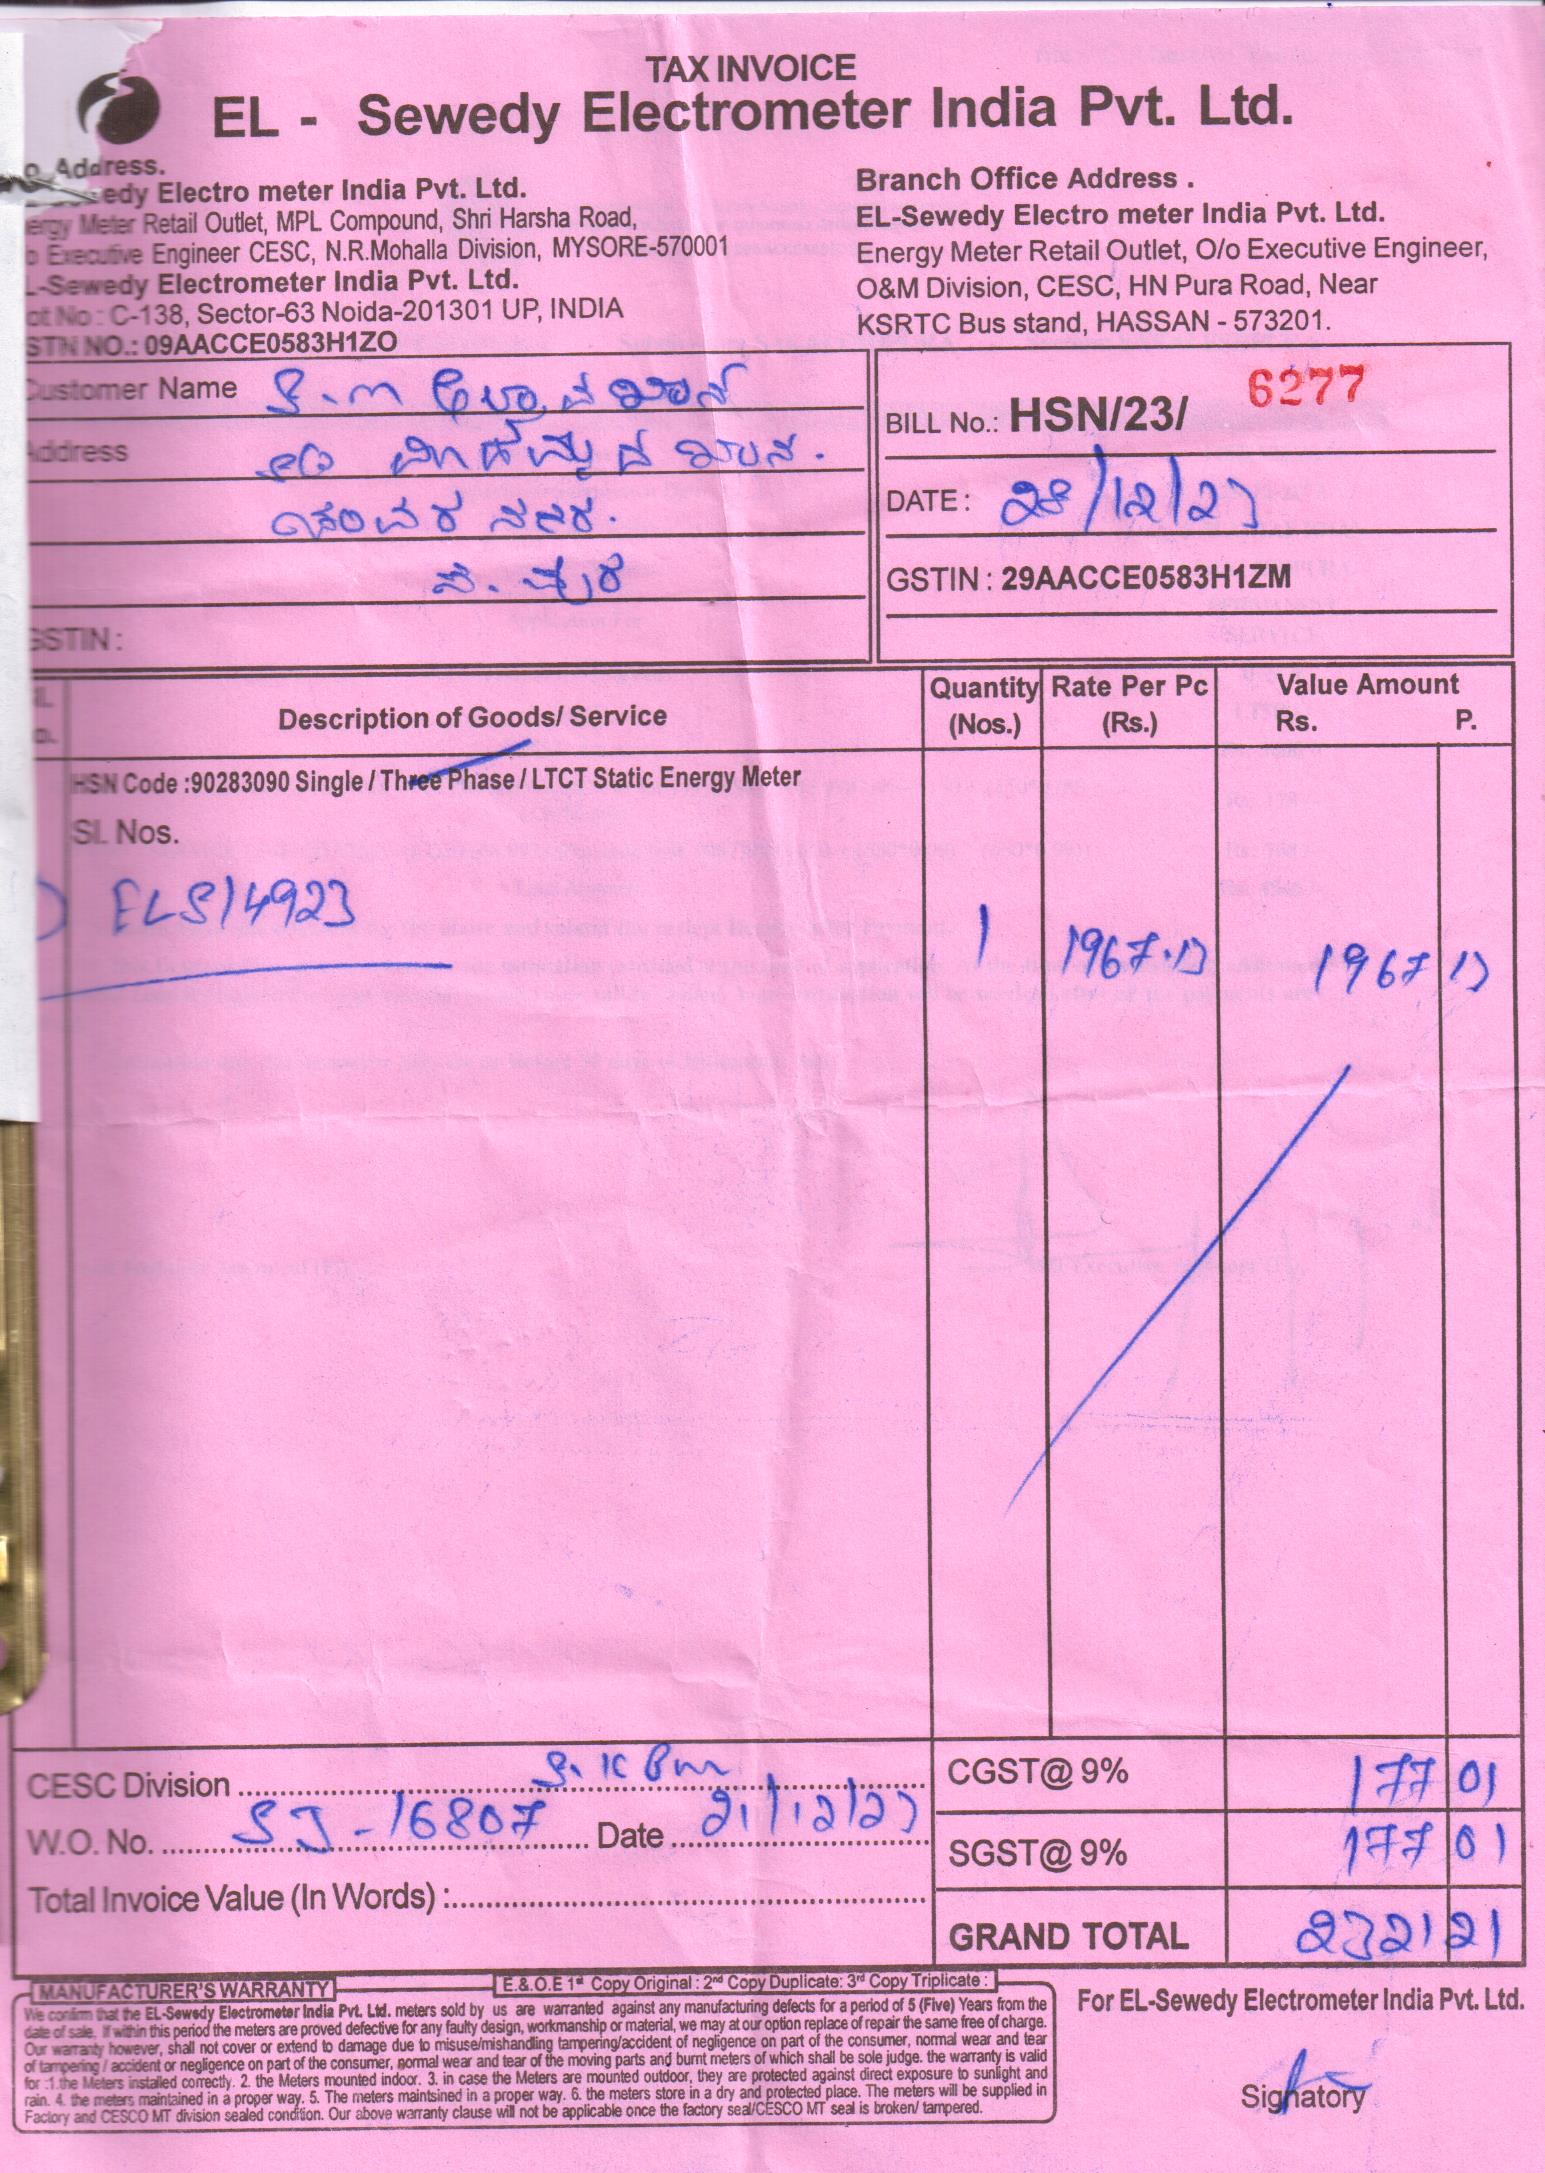 TAX INVOICE
EL - Sewedy Electrometer India Pvt. Ltd.
Address.
edy Electro meter India Pvt. Ltd.
ergy Meter Retail Outlet, MPL Compound, Shri Harsha Road,
o Executive Engineer CESC, N.R.Mohalla Division, MYSORE-570001
L-Sewedy Electrometer India Pvt. Ltd.
ot No : C-138, Sector-63 Noida-201301 UP, INDIA
STN NO.: 09AACCE0583H1ZO
Branch Office Address .
EL-Sewedy Electro meter India Pvt. Ltd.
Energy Meter Retail Outlet, O/o Executive Engineer,
O&M Division, CESC, HN Pura Road, Near
KSRTC Bus stand, HASSAN - 573201.
Customer Name
Address
GSTIN :
BILL No.: HSN/23/ 6277
DATE : 28/12/23
GSTIN : 29AACCE0583H1ZM
Description of Goods/ Service
Quantity (Nos.)
Rate Per Pc (Rs.)
Value Amount
Rs. P.
HSN Code :90283090 Single / Three Phase / LTCT Static Energy Meter
Sl. Nos.
ELS14923 1 1967.13 1967 13
CESC Division
W.O. No. SJ-16807 Date 21/12/23
Total Invoice Value (In Words) :
CGST@ 9% 177 01
SGST@ 9% 177 01
GRAND TOTAL 2321 21
MANUFACTURER'S WARRANTY
E.&.O.E 1st Copy Original : 2nd Copy Duplicate: 3rd Copy Triplicate :
We confirm that the EL-Sewedy Electrometer India Pvt. Ltd. meters sold by us are warranted against any manufacturing defects for a period of 5 (Five) Years from the
date of sale. If within this period the meters are proved defective for any faulty design, workmanship or material, we may at our option replace of repair the same free of charge.
Our warranty however, shall not cover or extend to damage due to misuse/mishandling tampering/accident of negligence on part of the consumer, normal wear and tear
of tampering / accident or negligence on part of the consumer, normal wear and tear of the moving parts and burnt meters of which shall be sole judge. the warranty is valid
for :1.the Meters installed correctly. 2. the Meters mounted indoor. 3. in case the Meters are mounted outdoor, they are protected against direct exposure to sunlight and
rain. 4. the meters maintained in a proper way. 5. The meters maintsined in a proper way. 6. the meters store in a dry and protected place. The meters will be supplied in
Factory and CESCO MT division sealed condition. Our above warranty clause will not be applicable once the factory seal/CESCO MT seal is broken/ tampered.
For EL-Sewedy Electrometer India Pvt. Ltd.
Signatory